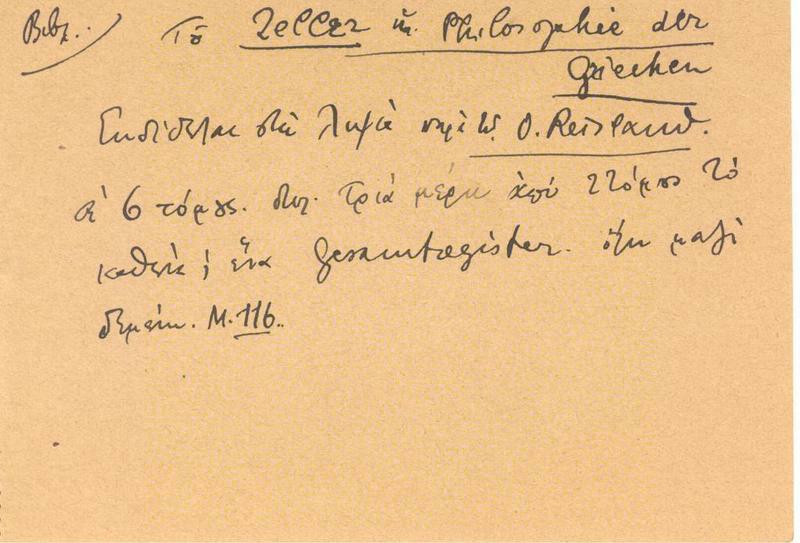 Βιβλ. Τοῦ Zeller ἡ Philosophie der
Griechen
Ἐκδίδεται στὴ Λειψία παρὰ τῷ O. Reisland.
σὲ 6 τόμους. δηλ. τρία μέρη ἀπὸ 2 τόμους τὸ
καθένα; ἕνα Gesamtregister. ὅλη μαζὶ
δεμένη. M. 116..